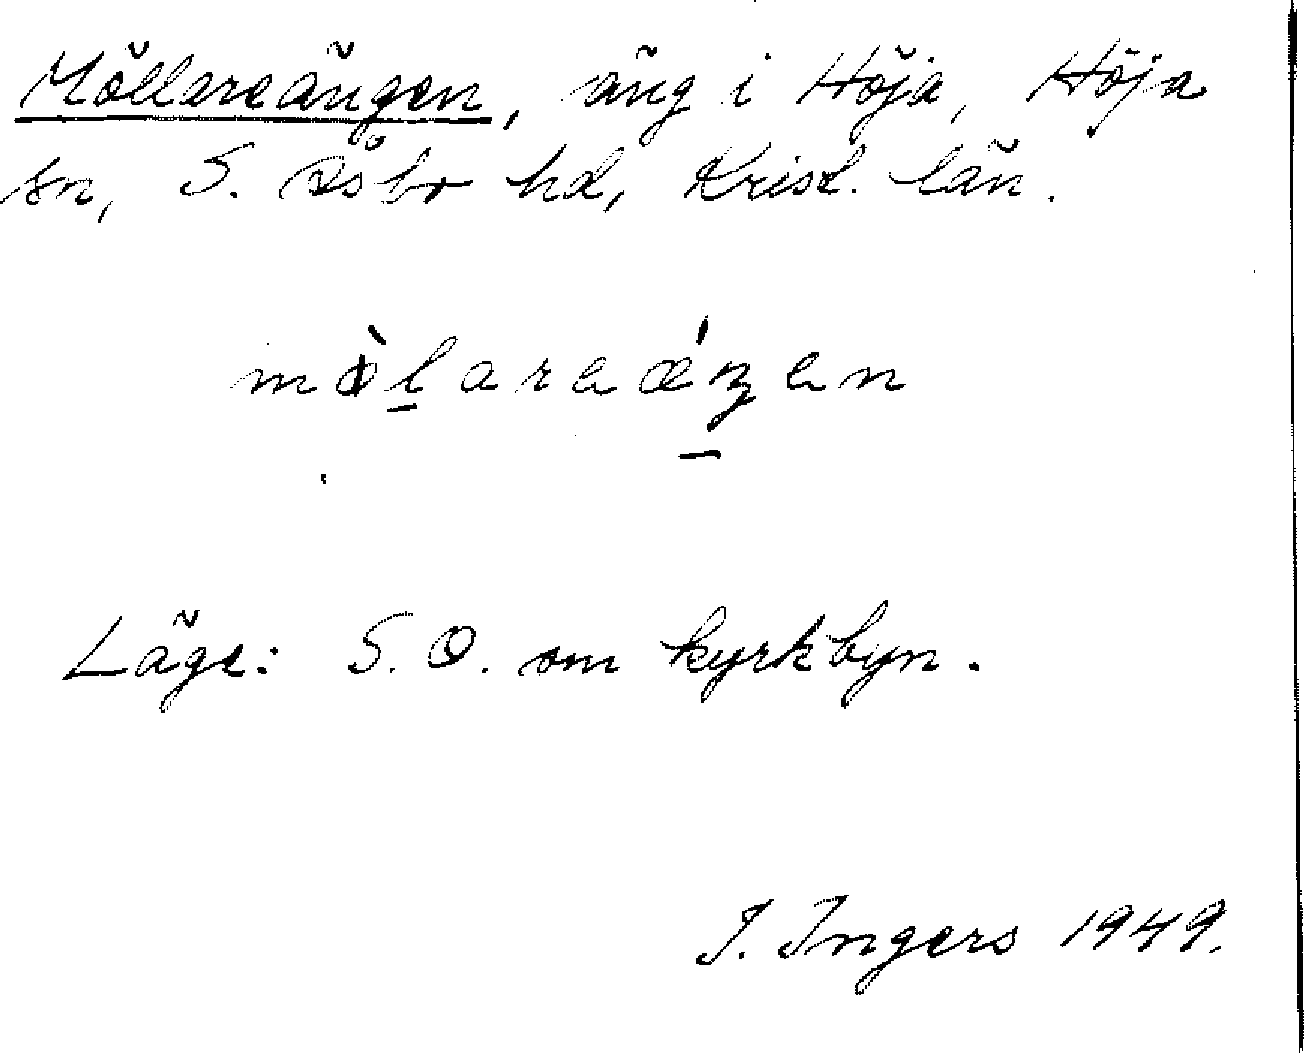 Möllareängen, äng i Höja, Höja
sn, S. Åsbo hd, Krist. län.
mø̀l̲areǽŋen
Läge: S.O. om kyrkbyn.
I. Ingers 1949.